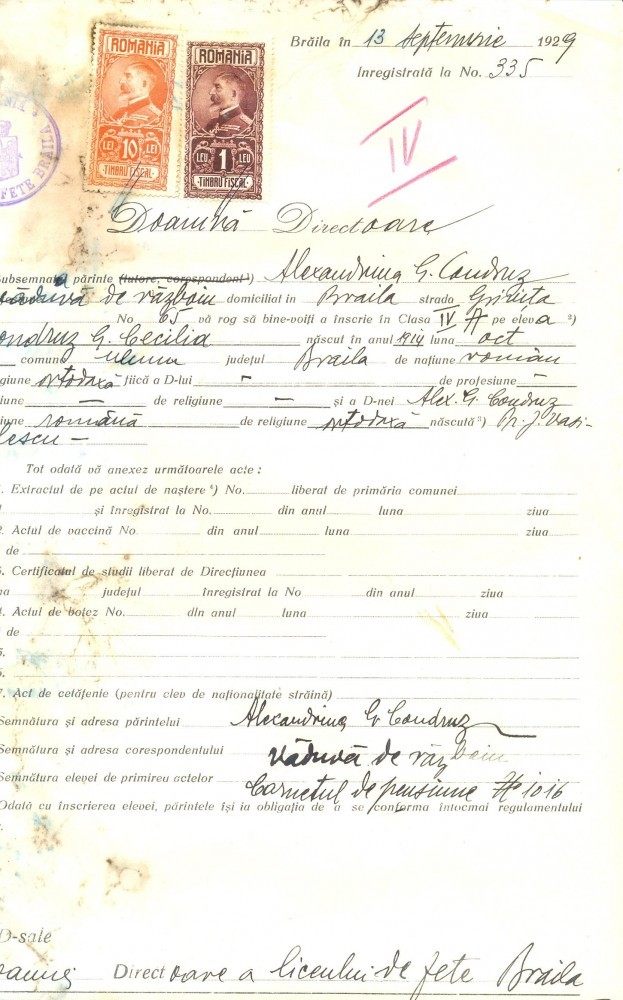 Brăila în 13 Septemvrie 1929
Inregistrată la No. 335
ROMANIA
LEI 10 LEI
TIMBRU FISCAL
ROMANIA
LEU 1 LEU
TIMBRU FISCAL
FETE BRAILA
IV
Doamnă Directoare
Subsemnata părinte (tutore, corespondent ¹) Alexandrina G. Condruz
văduvă de războiu domiciliat in Braila strada Grivița
No 65 vă rog să bine-voiți a inscrie in Clasa IV A pe eleva ²)
ondruz G. Cecilia născut în anul 1914 luna oct
comuna județul Braila de națiune român
igiune ortodoxă fiică a D-lui – de profesiune –
iune – de religiune – și a D-nei Alex. G. Condruz
iune română de religiune ortodoxă născută ³) Pr. J. Vasi-
lescu –
Tot odată vă anexez următoarele acte :
1. Extractul de pe actul de naștere ⁴) No. liberat de primăria comunei
și înregistrat la No. din anul luna ziua
2. Actul de vaccină No. din anul luna ziua
de
3. Certificatul de studii liberat de Direcțiunea
na județul înregistrat la No din anul ziua
4. Actul de botez No. din anul luna ziua
de
5.
6.
7. Act de cetățenie (pentru elev de naționalitate străină)
Semnătura și adresa părintelui Alexandrina G Condruz
Semnătura și adresa corespondentului Văduvă de războiu
Semnătura elevei de primirea actelor Carnetul de pensiune No 1016
Odată cu înscrierea elevei, părintele își ia obligația de a se conforma întocmai regulamentului
D-sale
oamnei Directoare a liceului de fete Braila